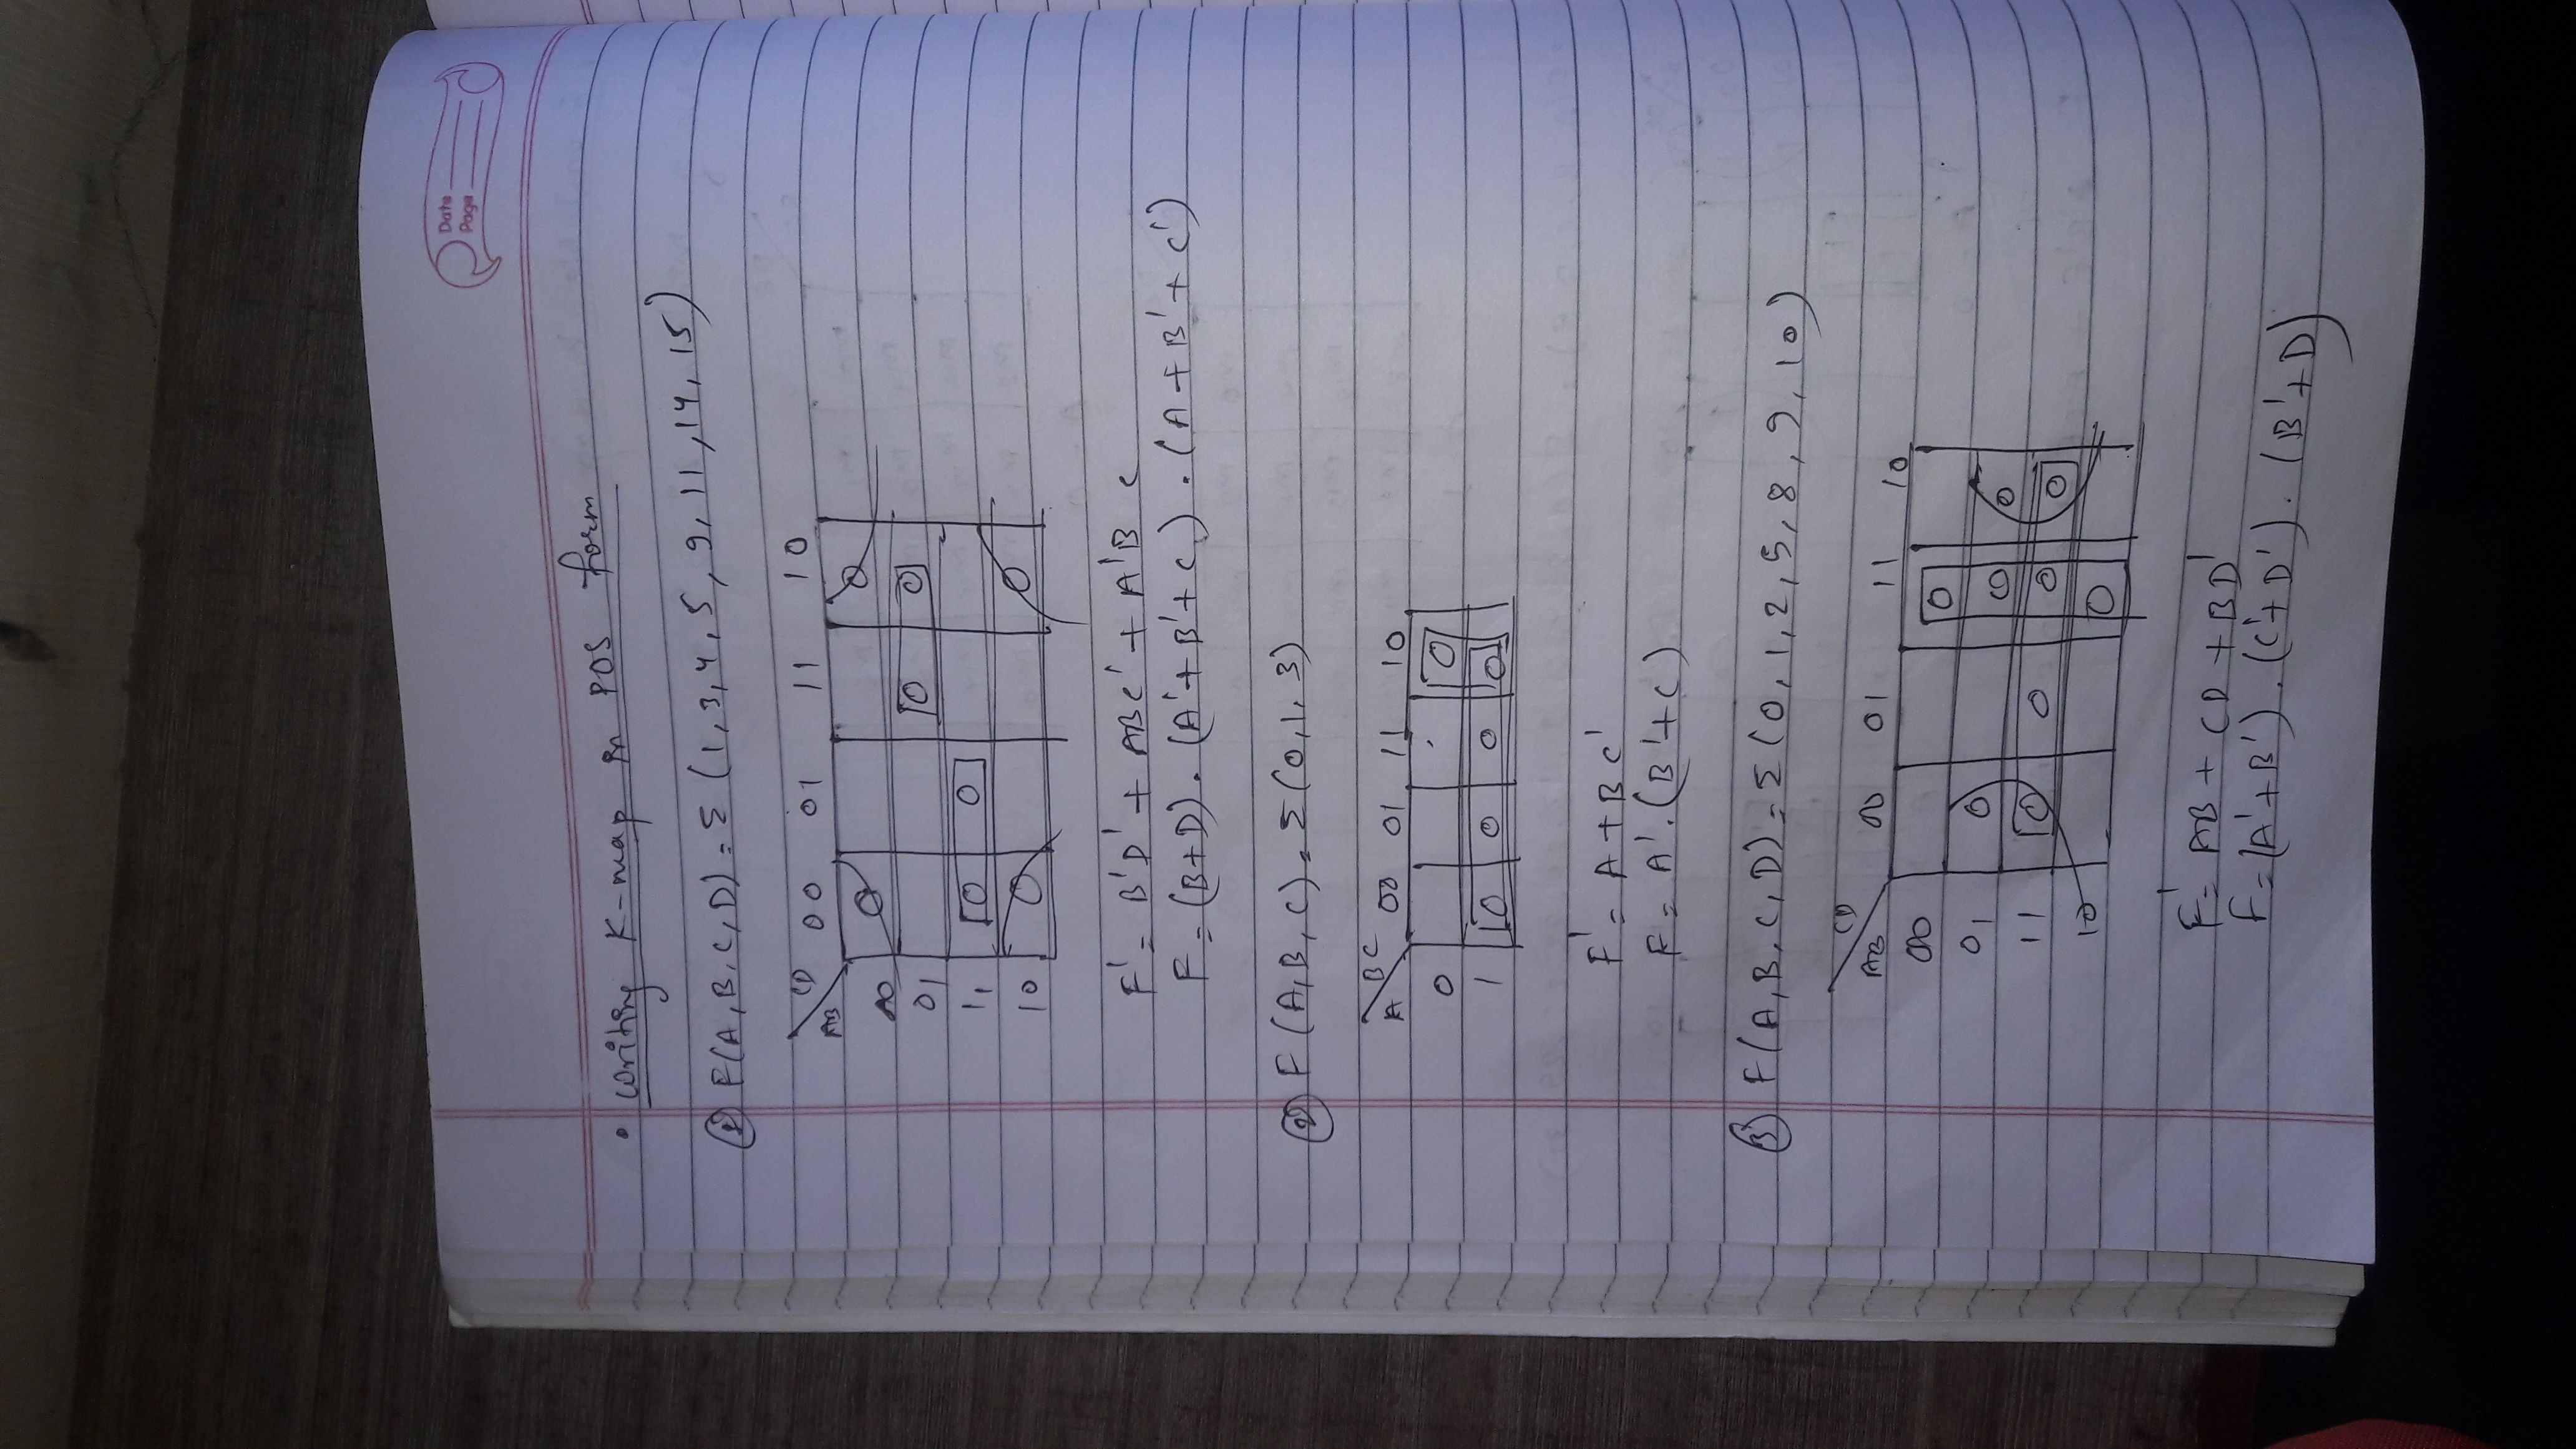 Date
Page
• Writing K-map in POS form
① F(A, B, C, D) = Σ (1, 3, 4, 5, 9, 11, 14, 15)
CD 00 01 11 10
AB
00 0 0
01 0 0
11 0 0
10 0 0
F' = B'D' + ABC' + A'B C
F = (B+D) . (A'+B'+C) . (A+B'+C')
② F (A, B, C) = Σ (0, 1, 3)
BC 00 01 11 10
A
0 0
1 0 0 0 0
F' = A + B C'
F = A' . (B'+C)
③ F(A, B, C, D) = Σ (0, 1, 2, 5, 8, 9, 10)
CD
AB 00 01 11 10
00 0
01 0 0 0
11 0 0 0 0
10 0
F' = AB + CD + BD'
F = (A'+B') . (C'+D') . (B'+D)